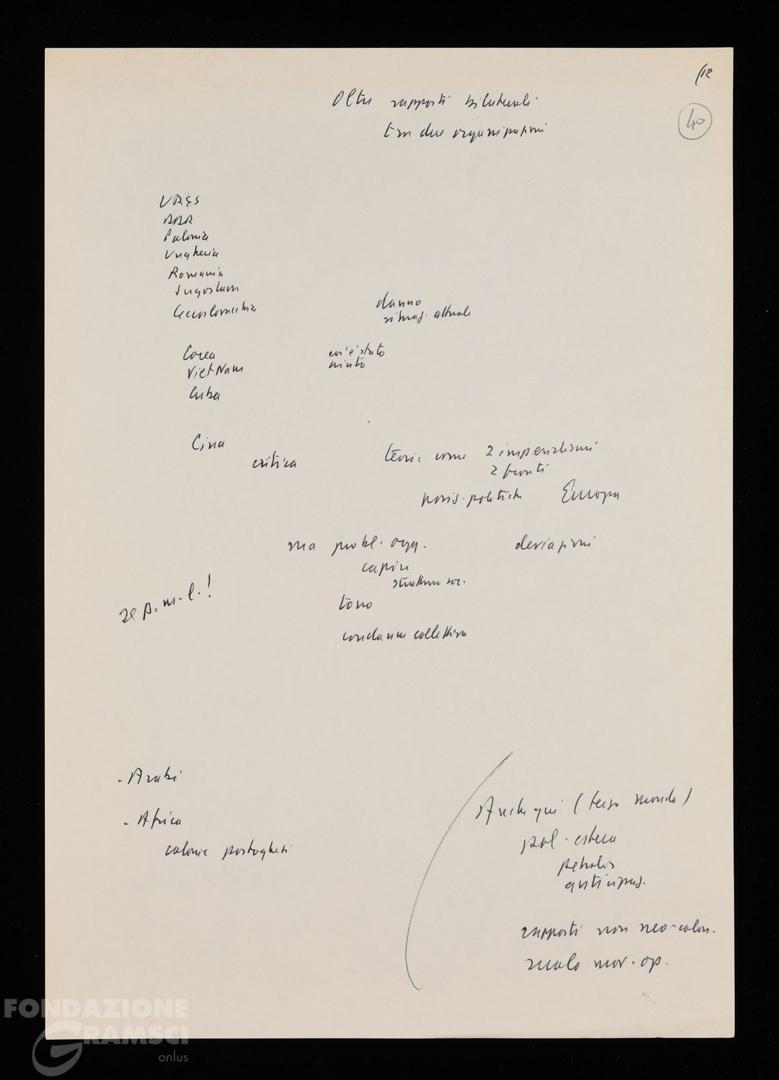 12
40
Oltre rapporti bilaterali
tra due organizzazioni
URSS
Polonia
Ungheria
Romania
Jugoslavia
Cecoslovacchia
danno
situaz. attuale
Corea
VietNam
Cuba
Cina
critica
teoria come 2 imperialismi
2 fronti
posiz. politich Europa
ma probl. ogg.
deviazioni
capire
struttura soc.
tono
condanna collettiva
p.m-l.!
- Arabi
- Africa
colonie portoghesi
Anche qui (terzo mondo)
pol. estera
petrolio
anticipaz.
rapporti non neo-colon.
ruolo mov. op.
FONDAZIONE
GRAMSCI
onlus